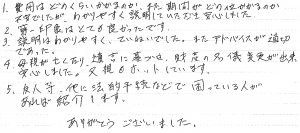 1. 費用はどのくらいかかるのか、また期間がどの位かかるのか
不安でしたが、わかりやすく説明していただき安心しました。
2. 第一印象はとても良かったです。
3. 説明はわかりやすく、ていねいでした。またアドバイスが適切
であった。
4. 母親が亡くなり、遺言に基づき、財産の名儀変更が出来
安心しました。父親もホットしています。
5. 友人等、他に法的手続などで困っている人が
あれば紹介します。
ありがとうございました。